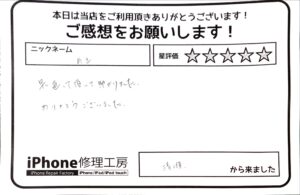 本日は当店をご利用頂きありがとうございます!
ご感想をお願いします!
ニックネーム
星評価 ☆☆☆☆☆
早急に直って助かりました。
ありがとうございました。
iPhone修理工房
iPhone Repair Factory iPhone/iPad/iPod touch
から来ました